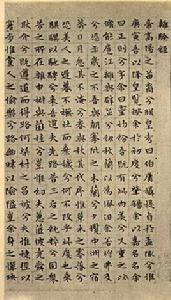 離騷經
帝高陽之苗裔兮朕皇考曰伯庸攝提貞於孟陬兮惟
庚寅吾以降皇覽揆余於初度兮肇錫余以嘉名名余
曰正則兮字余曰靈均紛吾既有此內美兮又重之以
脩能扈江離與辟芷兮紉秋蘭以為佩汨余若將不
及兮恐年歲之不吾與朝搴阰之木蘭兮夕攬中洲之宿
莽日月忽其不淹兮春與秋其代序惟草木之零落兮
恐美人之遲暮不撫壯而棄穢兮何不改乎此度也乘
騏驥以馳騁兮來吾導夫先路昔三后之純粹兮固衆
芳之所在雜申椒與菌桂兮豈維紉夫蕙茝彼堯舜之
耿介兮既遵道而得路何桀紂之昌披兮夫唯捷徑以
窘步惟黨人之偷樂兮路幽昧以險隘豈余身之憚